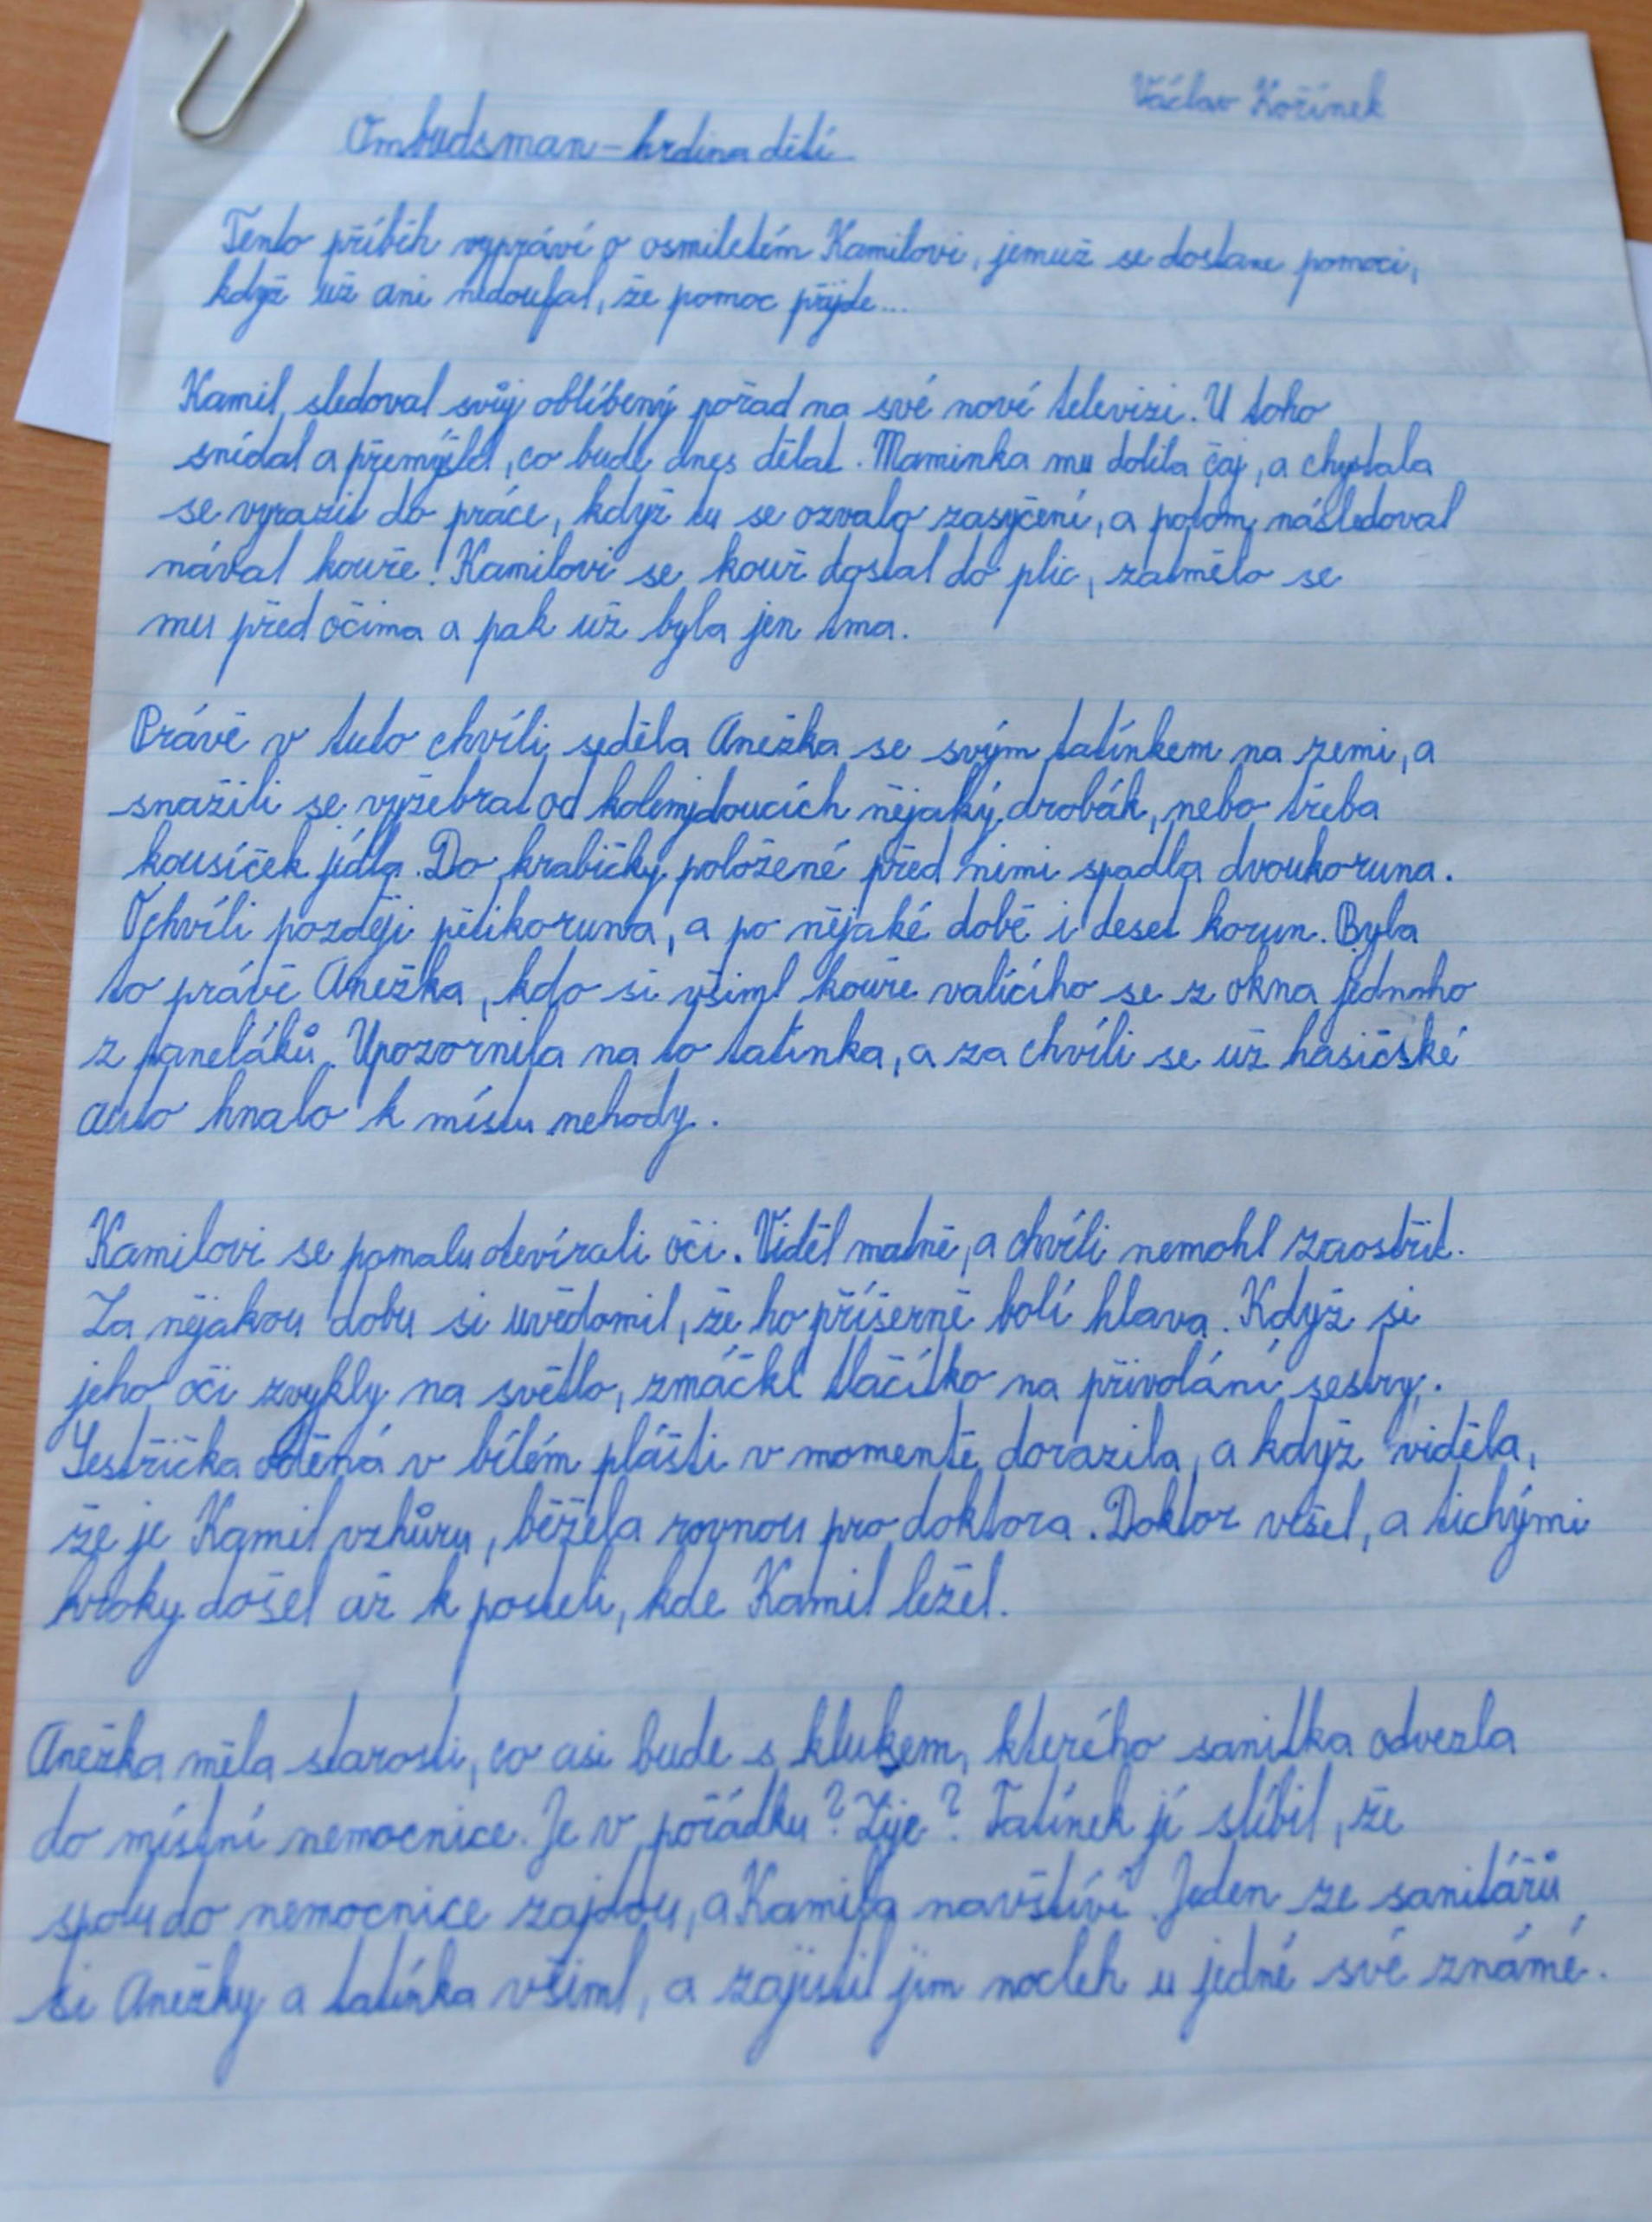 Václav Kořínek
Ombudsman – hrdina dětí
Tento příběh vypráví o osmiletém Kamilovi, jemuž se dostane pomoci,
když už ani nedoufal, že pomoc přijde...
Kamil sledoval svůj oblíbený pořad na své nové televizi. U toho
snídal a přemýšlel, co bude dnes dělat. Maminka mu dolila čaj, a chystala
se vyrazit do práce, když tu se ozvalo zasyčení, a potom následoval
nával kouře! Kamilovi se kouř dostal do plic, zatmělo se
mu před očima a pak už byla jen tma.
Právě v tuto chvíli seděla Anežka se svým tatínkem na zemi, a
snažili se vyžebrat od kolemjdoucích nějaký drobák, nebo třeba
kousíček jídla. Do krabičky položené před nimi spadla dvoukoruna.
O chvíli později pětikoruna, a po nějaké době i deset korun. Byla
to právě Anežka, kdo si všiml kouře valícího se z okna jednoho
z paneláků. Upozornila na to tatínka, a za chvíli se už hasičské
auto hnalo k místu nehody.
Kamilovi se pomalu otevírali oči. Viděl matně, a chvíli nemohl zaostřit.
Za nějakou dobu si uvědomil, že ho příšerně bolí hlava. Když si
jeho oči zvykly na světlo, zmáčkl tlačítko na přivolání sestry.
Sestřička oděná v bílém plášti v momentě dorazila, a když viděla,
že je Kamil vzhůru, běžela rovnou pro doktora. Doktor vešel, a tichými
kroky došel až k posteli, kde Kamil ležel.
Anežka měla starosti, co asi bude s klukem, kterého sanitka odvezla
do místní nemocnice. Je v pořádku? Žije? Tatínek jí slíbil, že
spolu do nemocnice zajdou, a Kamila navštíví. Jeden ze sanitářů
si Anežky a tatínka všiml, a zajistil jim nocleh u jedné své známé.